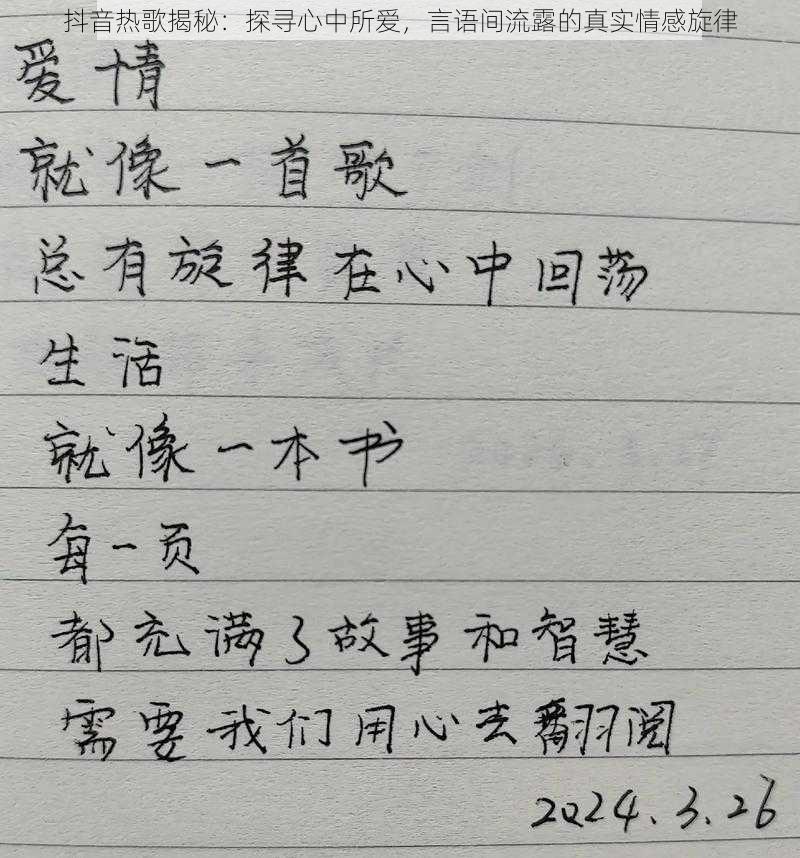 抖音热歌揭秘：探寻心中所爱，言语间流露的真实情感旋律
爱情
就像一首歌
总有旋律在心中回荡
生活
就像一本书
每一页
都充满了故事和智慧
需要我们用心去翻阅
2024.3.26